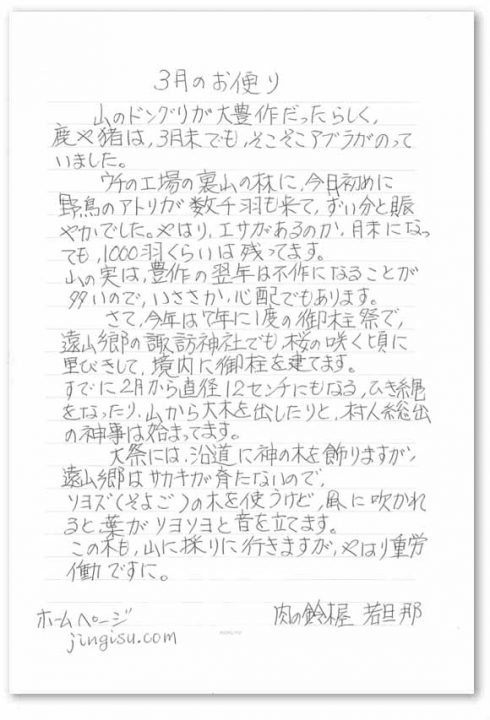 3月のお便り
山のドングリが大豊作だったらしく、
鹿や猪は、3月末でも、そこそこアブラがのって
いました。
ウチの工場の裏山の林に、今月初めに
野鳥のアトリが数千羽も来て、ずい分と賑
やかでした。やはり、エサがあるのか、月末になっ
ても、1000羽くらいは残ってます。
山の実は、豊作の翌年は不作になることが
多いので、いささか、心配でもあります。
さて、今年は7年に1度の御柱祭で、
遠山郷の諏訪神社でも、桜の咲く頃に
里びきして、境内に御柱を建てます。
すでに2月から直径12センチにもなる、ひき縄
をなったり、山から大木を出したりと、村人総出
の神事は始まってます。
大祭には、沿道に神の木を飾りますが、
遠山郷はサカキが育たないので、
ソヨズ(そよご)の木を使うけど、風に吹かれ
ると葉がソヨソヨと音を立てます。
この木も、山に採りに行きますが、やはり重労
働ですに。
肉の鈴木屋 若旦那
ホームページ
jingisu.com